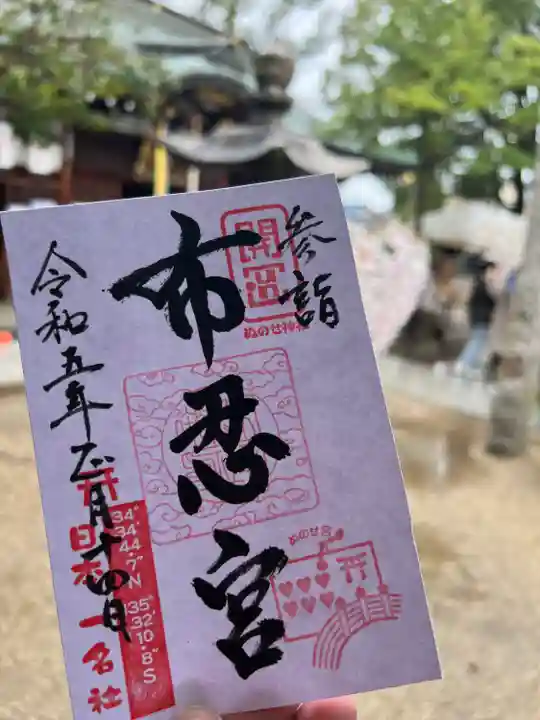 参詣
開運
ぬのせ神社
布忍宮
ぬのせ宮
令和五年正月十四日
日本一名社
34°
34'
44
.7"
N
135°
32'
10
.8"
S